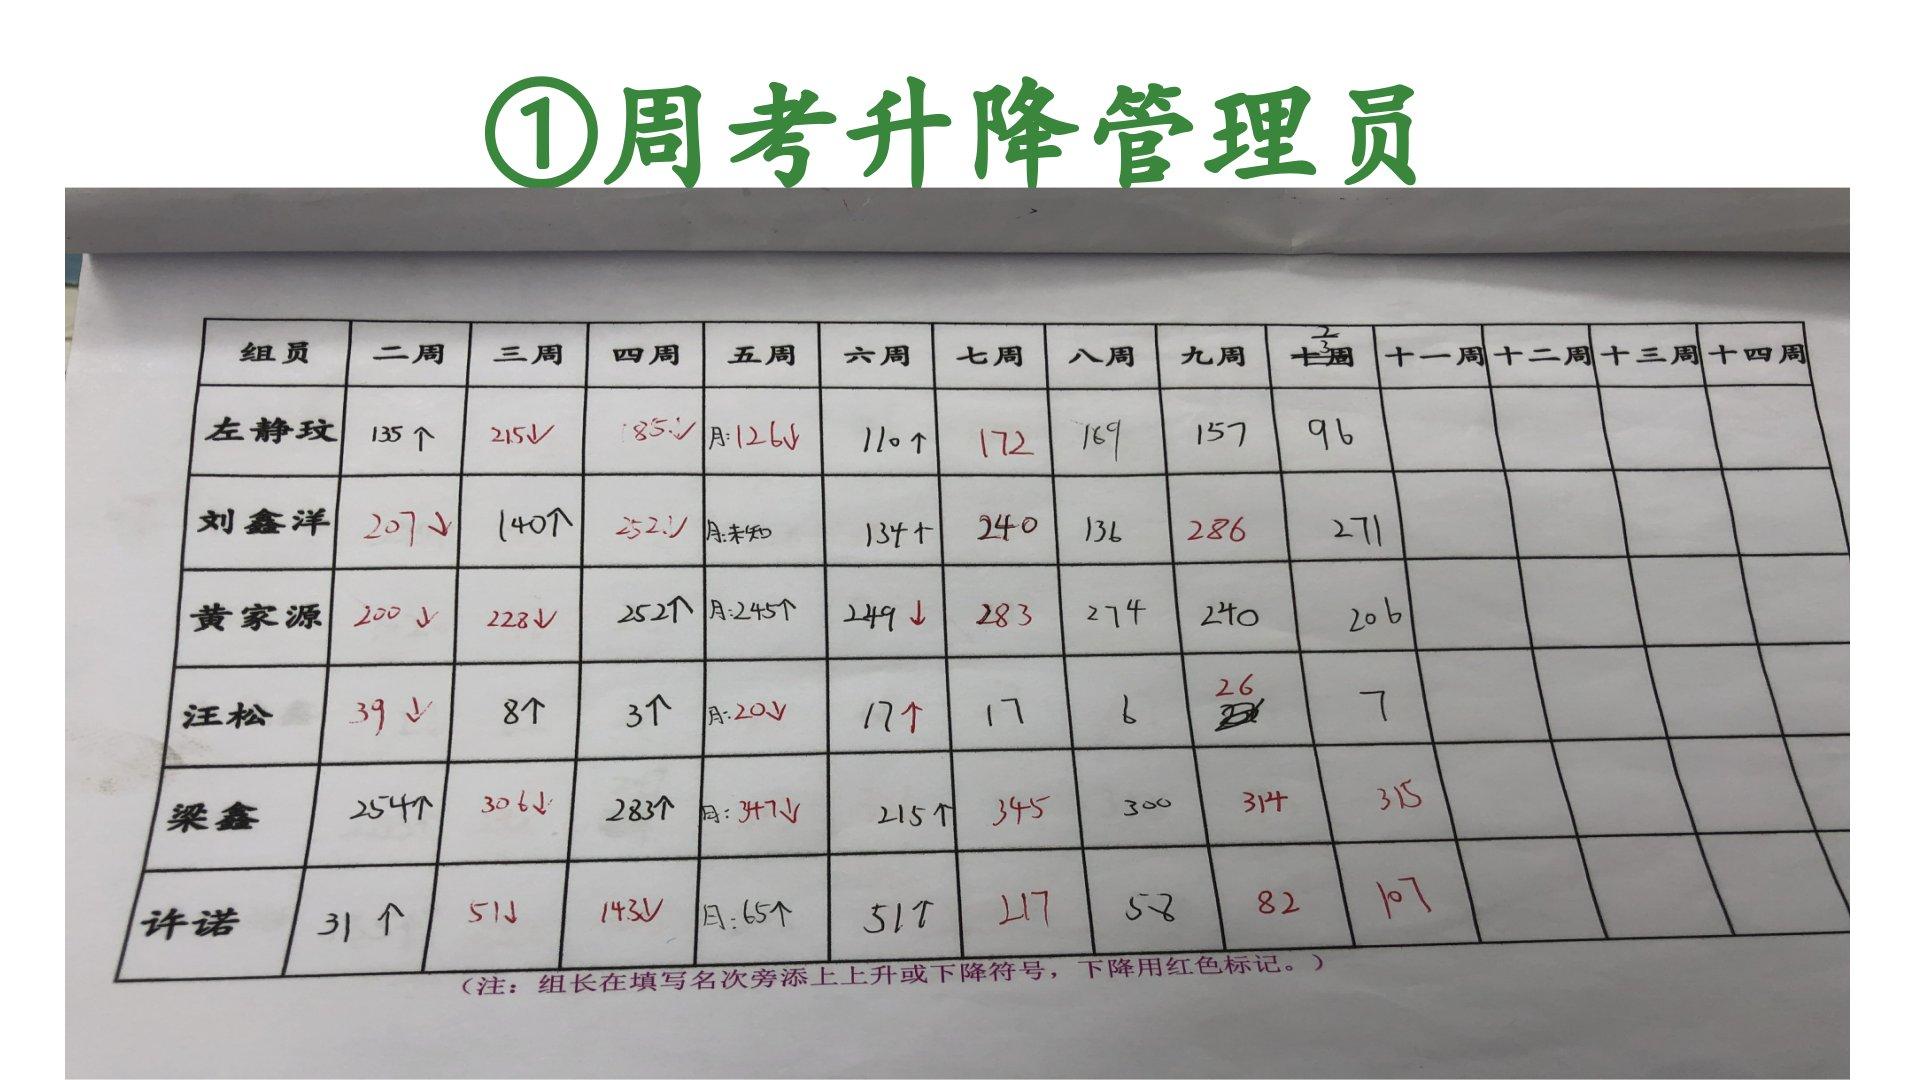 ①周考升降管理员
组员 二周 三周 四周 五周 六周 七周 八周 九周 十周 2 3 十一周 十二周 十三周 十四周
左静玟 135↑ 215↓ 185↓ 月:126↓ 110↑ 172 169 157 96
刘鑫洋 207↓ 140↑ 252↓ 月:未知 134↑ 240 136 286 271
黄家源 200↓ 228↓ 252↑ 月:245↑ 249↓ 283 274 240 206
汪松 39↓ 8↑ 3↑ 月:20↓ 17↑ 17 6 26 7
梁鑫 254↑ 306↓ 283↑ 月:347↓ 215↑ 345 300 314 315
许诺 31↑ 51↓ 143↓ 月:65↑ 51↑ 217 58 82 107
（注：组长在填写名次旁添上上升或下降符号，下降用红色标记。）